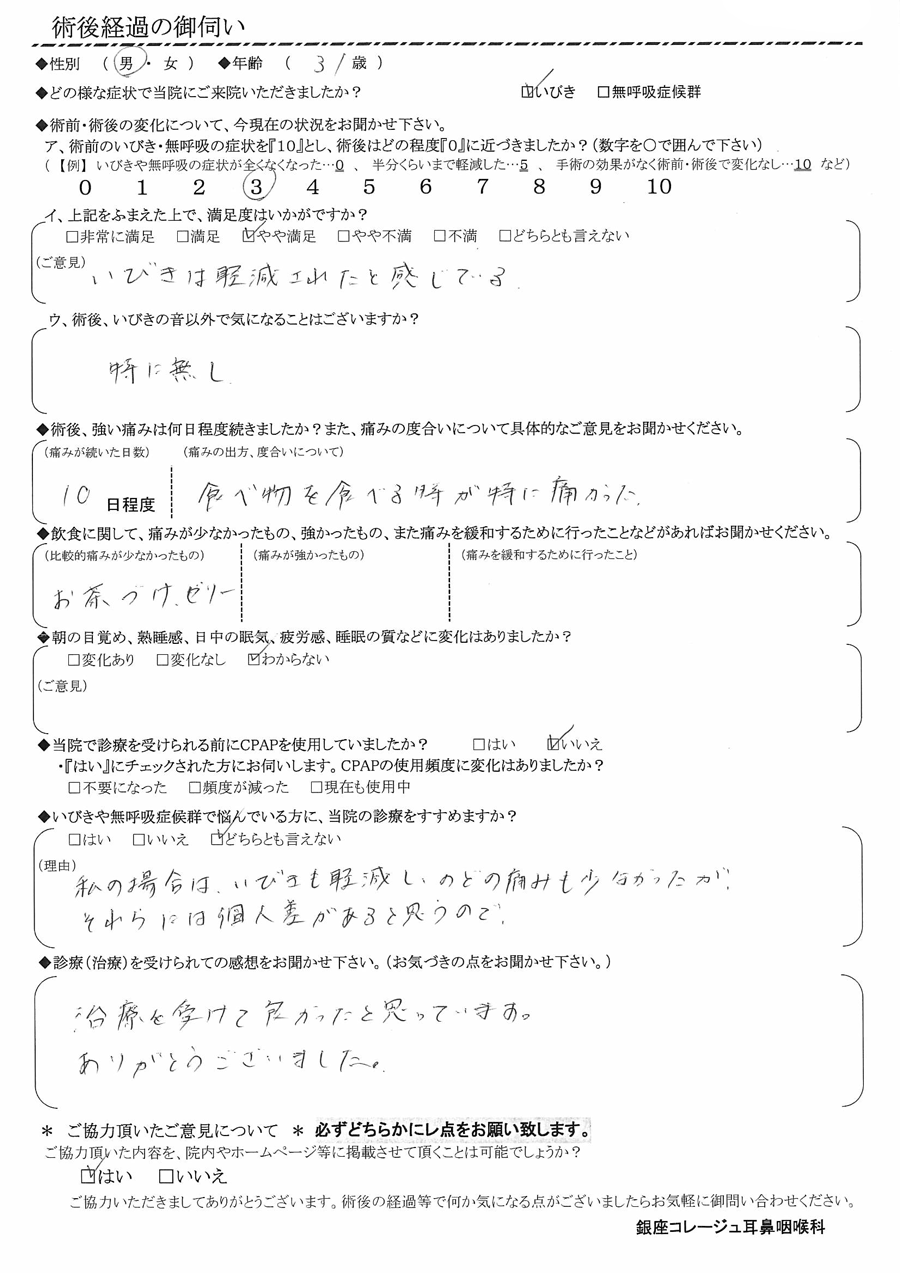 術後経過の御伺い
◆性別 ( 男 ・ 女 ) ◆年齢 ( 31 歳 )
◆どの様な症状で当院にご来院いただきましたか? ☑いびき □無呼吸症候群
◆術前・術後の変化について、今現在の状況をお聞かせ下さい。
ア、術前のいびき・無呼吸の症状を『10』とし、術後はどの程度『0』に近づきましたか?(数字を○で囲んで下さい)
(【例】 いびきや無呼吸の症状が全くなくなった…0 、 半分くらいまで軽減した…5 、 手術の効果がなく術前・術後で変化なし…10 など)
0 1 2 3 4 5 6 7 8 9 10
イ、上記をふまえた上で、満足度はいかがですか?
□非常に満足 □満足 ☑やや満足 □やや不満 □不満 □どちらとも言えない
(ご意見)
いびきは軽減されたと感じている.
ウ、術後、いびきの音以外で気になることはございますか?
特に無し.
◆術後、強い痛みは何日程度続きましたか?また、痛みの度合いについて具体的なご意見をお聞かせください。
(痛みが続いた日数) (痛みの出方、度合いについて)
10 日程度 食べ物を食べる時が特に痛かった.
◆飲食に関して、痛みが少なかったもの、強かったもの、また痛みを緩和するために行ったことなどがあればお聞かせください。
(比較的痛みが少なかったもの) (痛みが強かったもの) (痛みを緩和するために行ったこと)
お茶づけ、ゼリー
◆朝の目覚め、熟睡感、日中の眠気、疲労感、睡眠の質などに変化はありましたか?
□変化あり □変化なし ☑わからない
(ご意見)
◆当院で診療を受けられる前にCPAPを使用していましたか? □はい ☑いいえ
・『はい』にチェックされた方にお伺いします。CPAPの使用頻度に変化はありましたか?
□不要になった □頻度が減った □現在も使用中
◆いびきや無呼吸症候群で悩んでいる方に、当院の診療をすすめますか?
□はい □いいえ ☑どちらとも言えない
(理由)
私の場合は、いびきも軽減し、のどの痛みも少なかったが、
それらには個人差があると思うので、
◆診療(治療)を受けられての感想をお聞かせ下さい。(お気づきの点をお聞かせ下さい。)
治療を受けて良かったと思っています。
ありがとうございました。
＊ ご協力頂いたご意見について ＊ 必ずどちらかにレ点をお願い致します。
ご協力頂いた内容を、院内やホームページ等に掲載させて頂くことは可能でしょうか?
☑はい □いいえ
ご協力いただきましてありがとうございます。術後の経過等で何か気になる点がございましたらお気軽に御問い合わせください。
銀座コレージュ耳鼻咽喉科